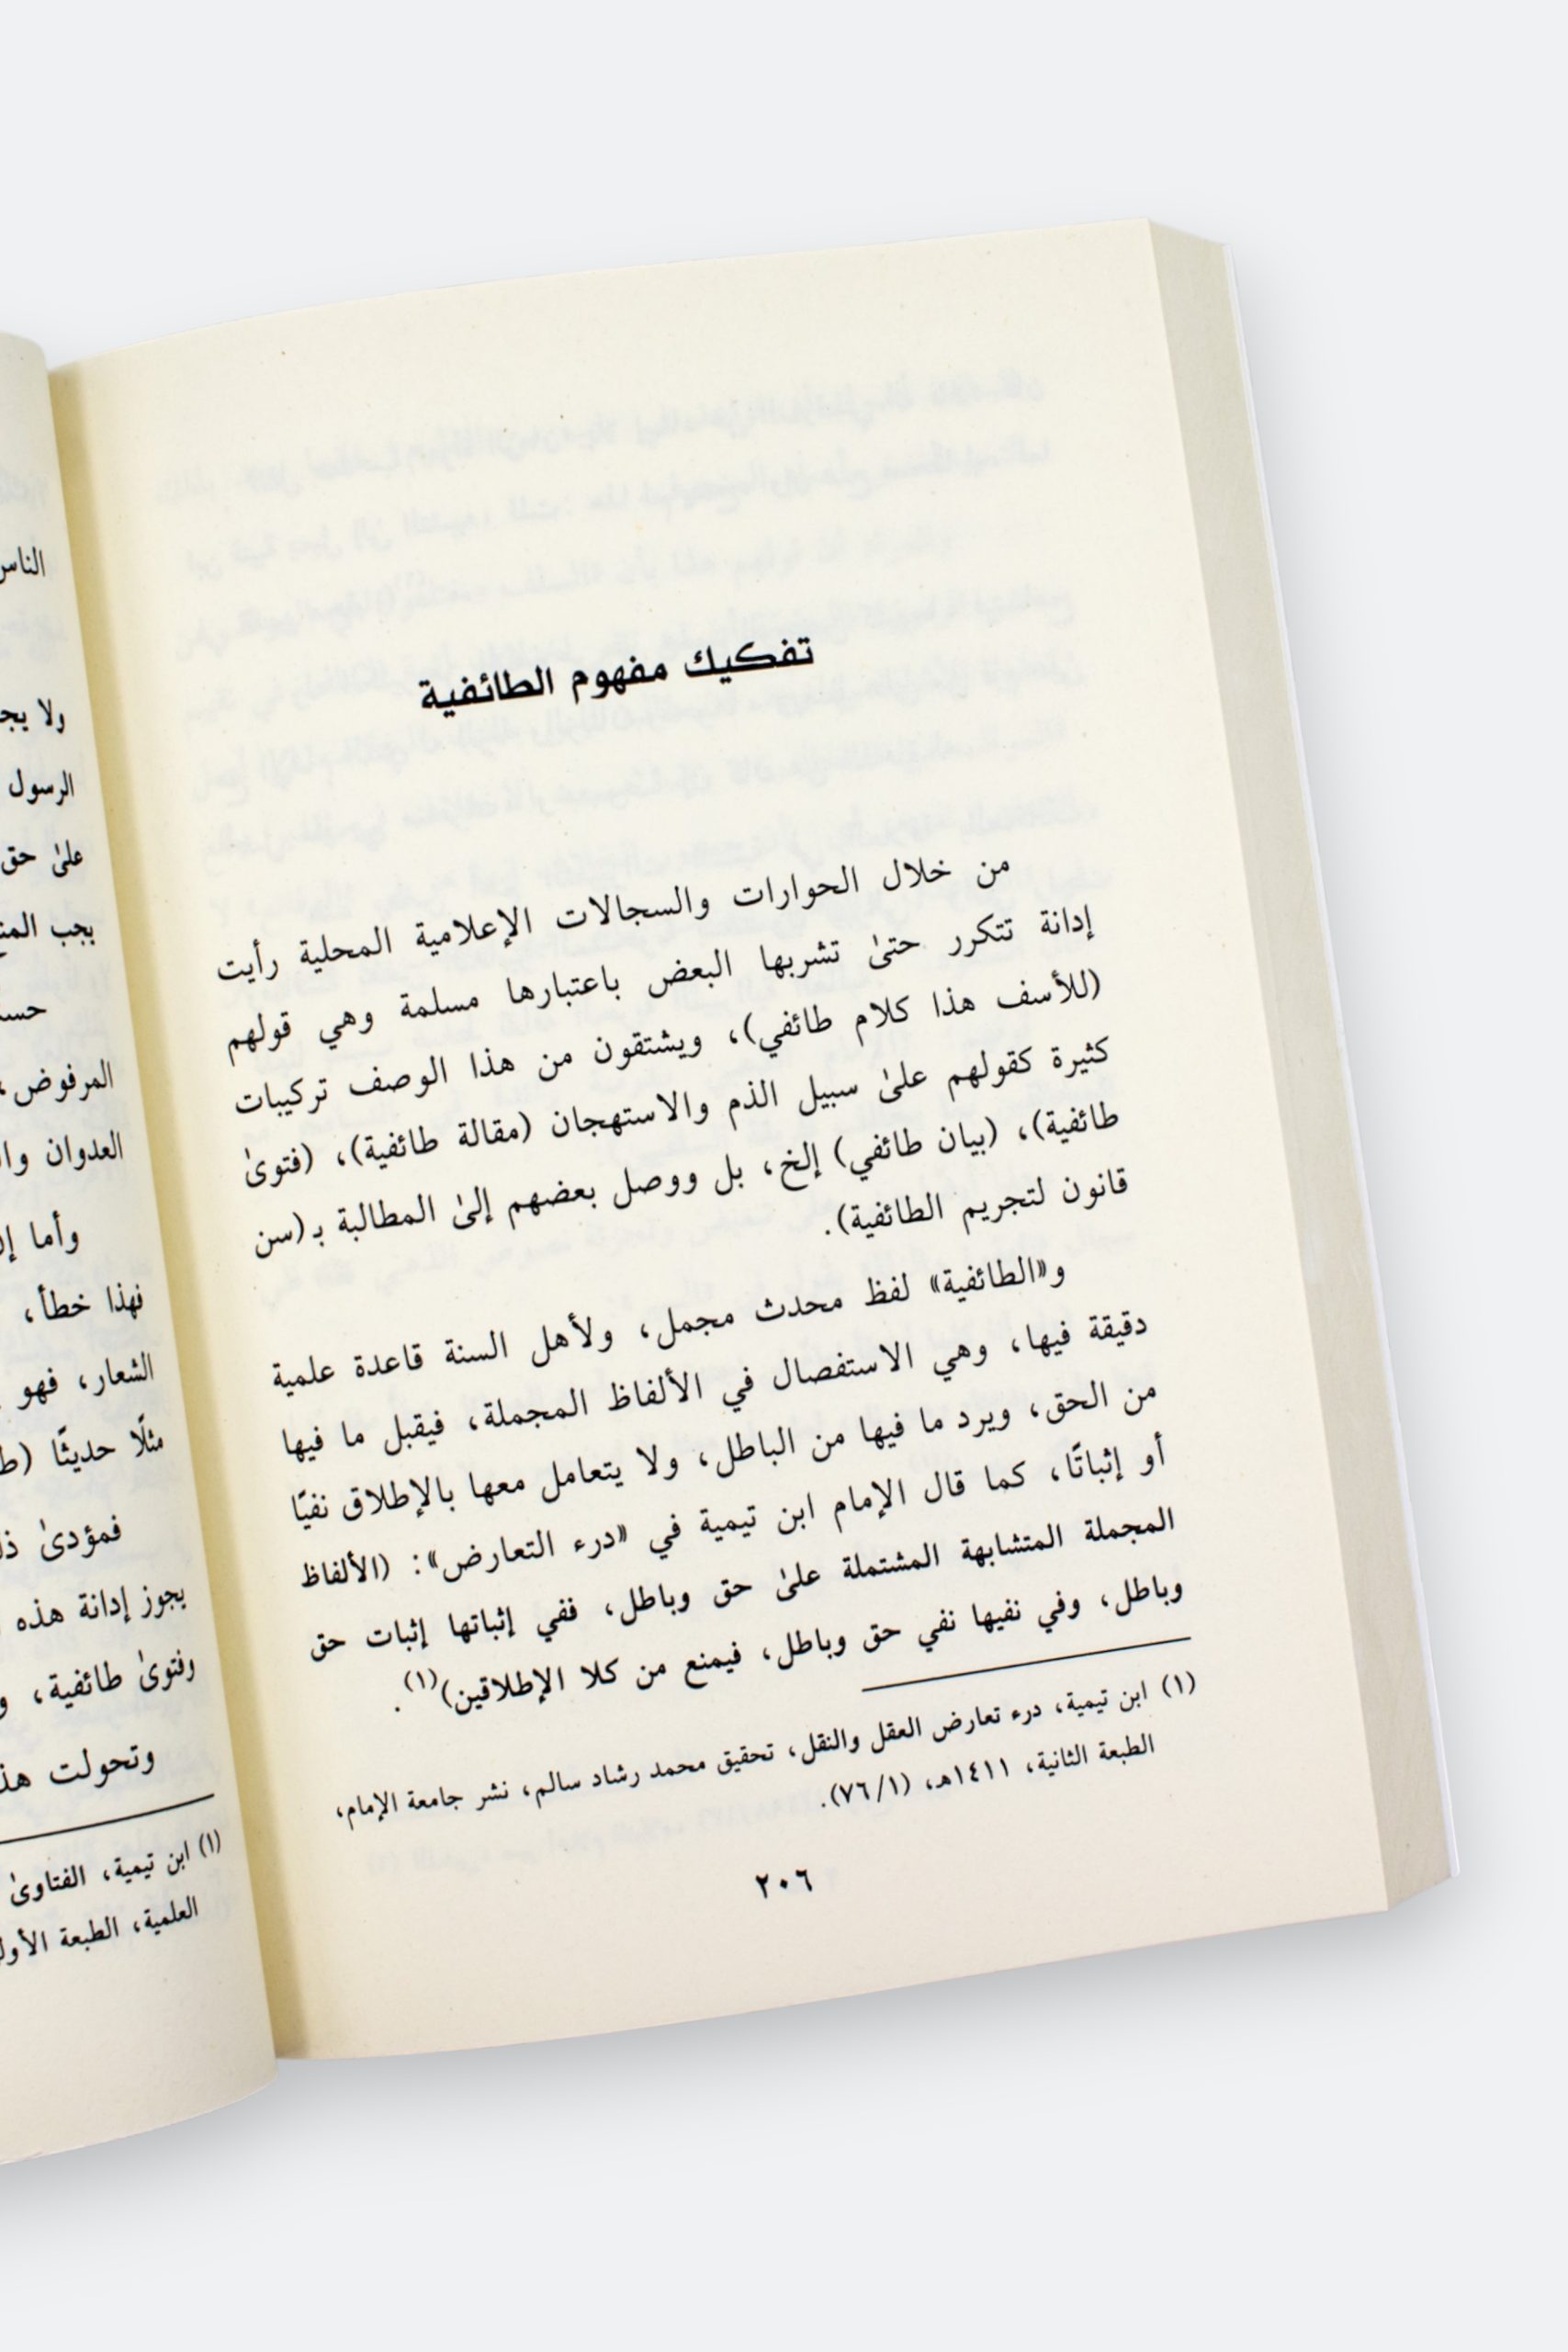 تفكيك مفهوم الطائفية
من خلال الحوارات والسجالات الإعلامية المحلية رأيت
إدانة تتكرر حتىٰ تشربها البعض باعتبارها مسلمة وهي قولهم
(للأسف هذا كلام طائفي)، ويشتقون من هذا الوصف تركيبات
كثيرة كقولهم علىٰ سبيل الذم والاستهجان (مقالة طائفية)، (فتوىٰ
طائفية)، (بيان طائفي) إلخ، بل ووصل بعضهم إلىٰ المطالبة بـ(سن
قانون لتجريم الطائفية).
و«الطائفية» لفظ محدث مجمل، ولأهل السنة قاعدة علمية
دقيقة فيها، وهي الاستفصال في الألفاظ المجملة، فيقبل ما فيها
من الحق، ويرد ما فيها من الباطل، ولا يتعامل معها بالإطلاق نفيًا
أو إثباتًا، كما قال الإمام ابن تيمية في «درء التعارض»: (الألفاظ
المجملة المتشابهة المشتملة علىٰ حق وباطل، ففي إثباتها إثبات حق
وباطل، وفي نفيها نفي حق وباطل، فيمنع من كلا الإطلاقين)(١).
(١) ابن تيمية، درء تعارض العقل والنقل، تحقيق محمد رشاد سالم، نشر جامعة الإمام،
الطبعة الثانية، ١٤١١هـ، (٧٦/١).
٢٠٦
الناس
ولا يجـ
الرسول
علىٰ حق
يجب
المرفوض،
العدوان
وأما
فهذا خطأ،
الشعار، فهو
مثلًا حديثًا
فمؤدىٰ
يجوز إدانة هذه
وفتوىٰ طائفية،
وتحولت
(١) ابن تيمية، الفتاوىٰ
العلمية، الطبعة